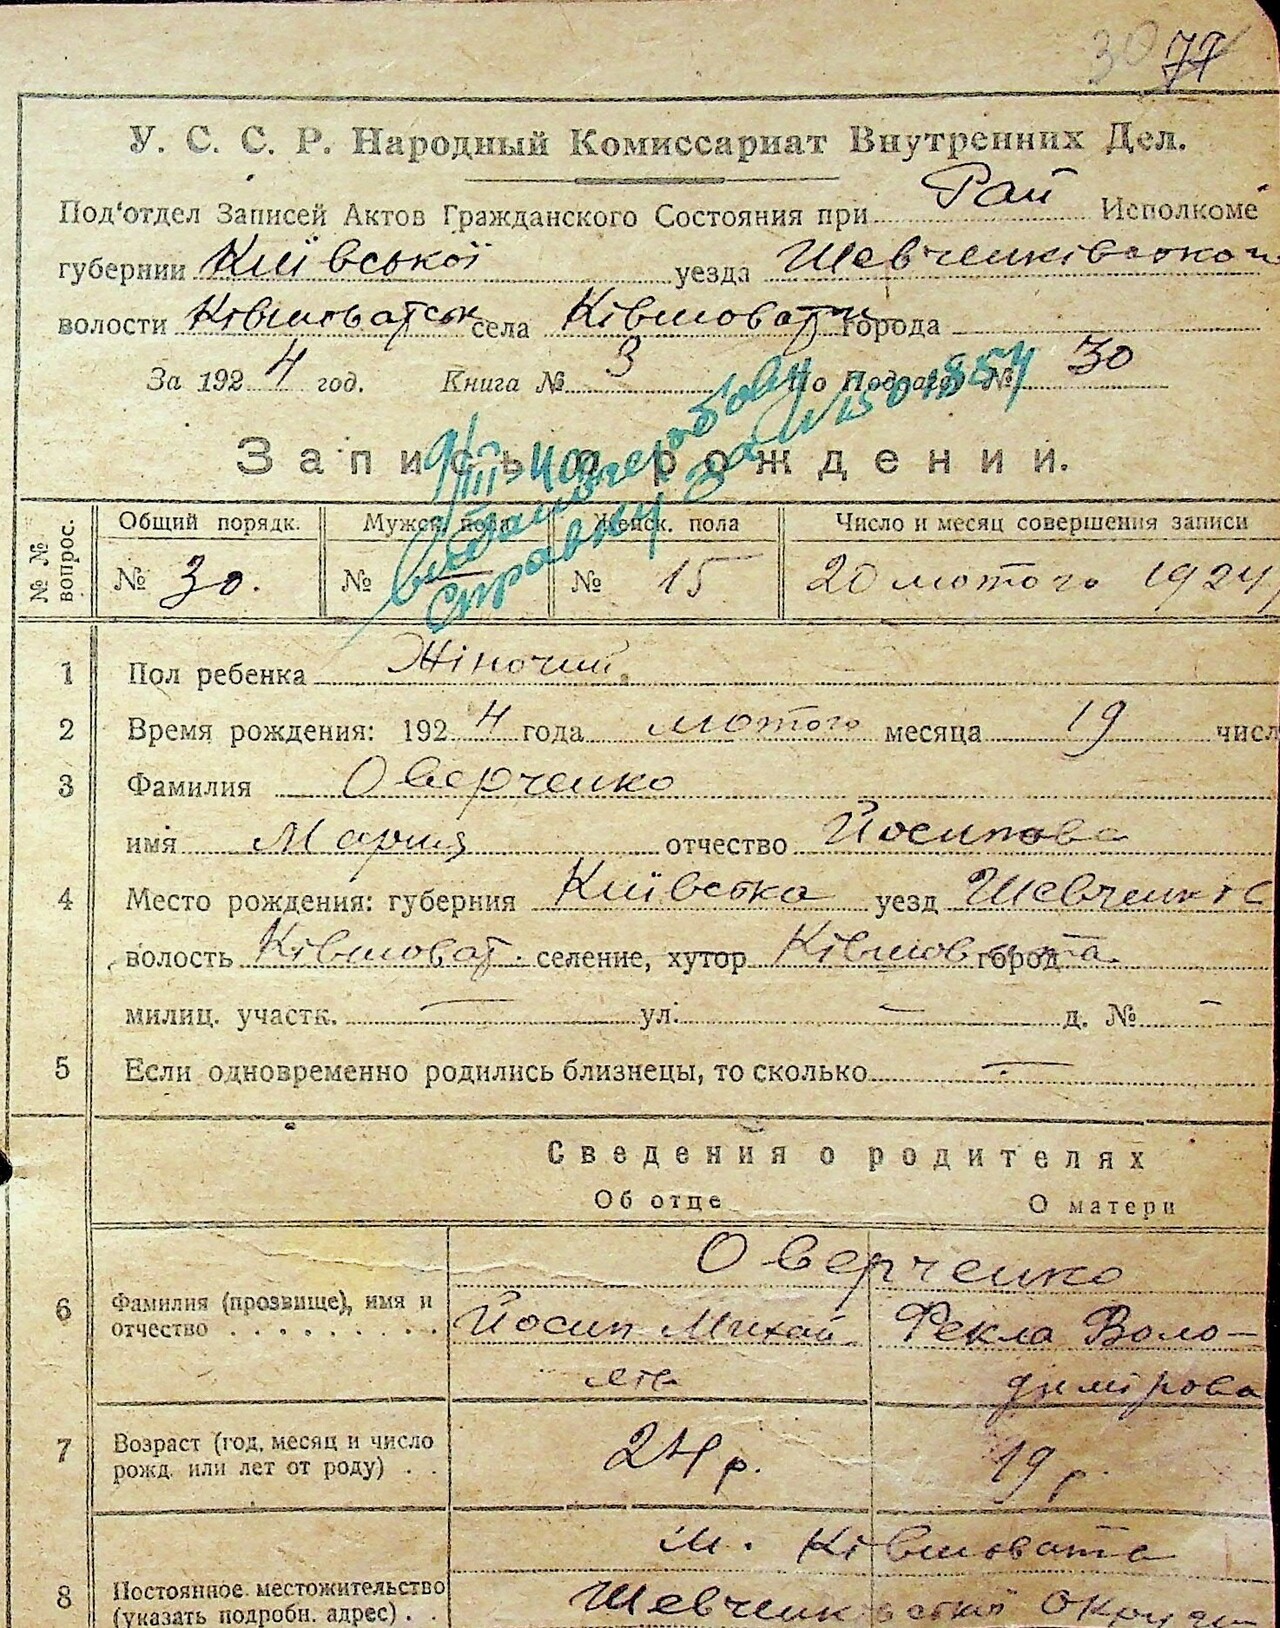 30 71
У. С. С. Р. Народный Комиссариат Внутренних Дел.
Под'отдел Записей Актов Гражданского Состояния при Рай Исполкоме
губернии Київської уезда Шевченківської
волости Ківшоватськ села Ківшовати города
За 1924 год. Книга № 3 По Подотд. № 30
Запись о рождении.
9/III-40
видано
справку за № 501854
№№ вопрос. Общий порядк. Мужск. пола Женск. пола Число и месяц совершения записи
№ 30. № — № 15 20 лютого 1924
1 Пол ребенка Жіночий
2 Время рождения: 1924 года лютого месяца 19 числ
3 Фамилия Оверченко
имя Мария отчество Йосипова
4 Место рождения: губерния Київська уезд Шевченків
волость Ківшоват. селение, хутор Ківшовата город
милиц. участк. — ул. — д. № —
5 Если одновременно родились близнецы, то сколько —
Сведения о родителях
Об отце О матери
Оверченко
6 Фамилия (прозвище), имя и отчество Йосип Михай Фекла Воло-
лів димірова
7 Возраст (год, месяц и число рожд. или лет от роду) 24 р. 19 р.
м. Ківшовата
8 Постоянное местожительство (указать подробн. адрес) Шевченківської Округи